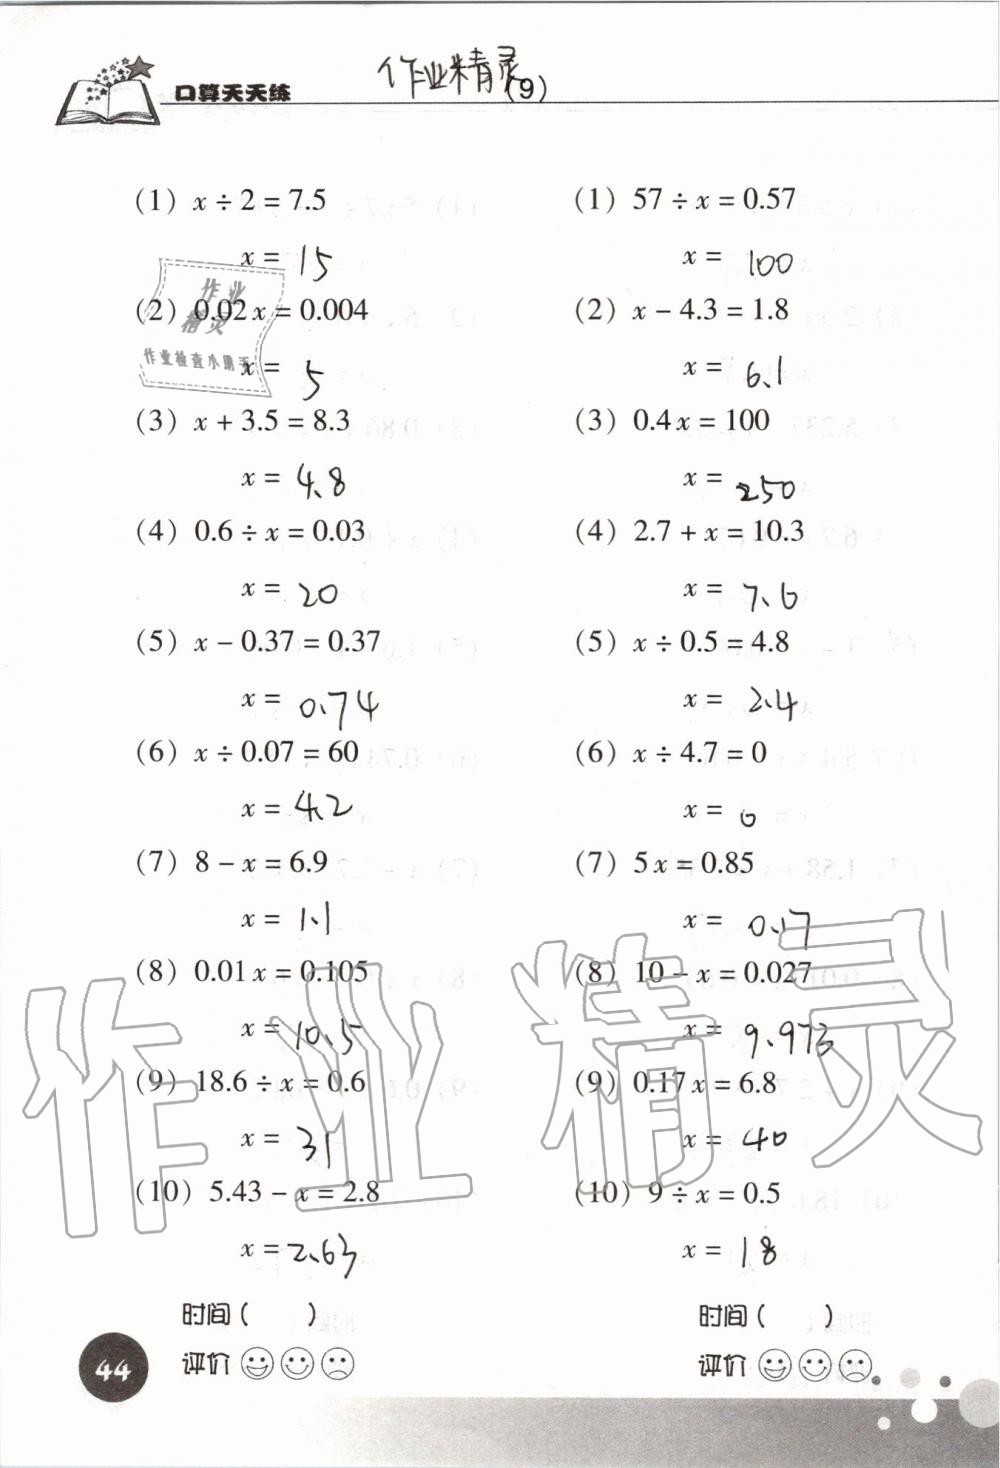 口算天天练
作业精灵
(9)
(1) x ÷ 2 = 7.5
x = 15
(2) 0.02x = 0.004
x = 5
(3) x + 3.5 = 8.3
x = 4.8
(4) 0.6 ÷ x = 0.03
x = 20
(5) x − 0.37 = 0.37
x = 0.74
(6) x ÷ 0.07 = 60
x = 4.2
(7) 8 − x = 6.9
x = 1.1
(8) 0.01x = 0.105
x = 10.5
(9) 18.6 ÷ x = 0.6
x = 31
(10) 5.43 − x = 2.8
x = 2.63
时间( )
评价
(1) 57 ÷ x = 0.57
x = 100
(2) x − 4.3 = 1.8
x = 6.1
(3) 0.4x = 100
x = 250
(4) 2.7 + x = 10.3
x = 7.6
(5) x ÷ 0.5 = 4.8
x = 2.4
(6) x ÷ 4.7 = 0
x = 0
(7) 5x = 0.85
x = 0.17
(8) 10 − x = 0.027
x = 9.973
(9) 0.17x = 6.8
x = 40
(10) 9 ÷ x = 0.5
x = 18
时间( )
评价
44
作业
精灵
作业检查小助手
作业精灵